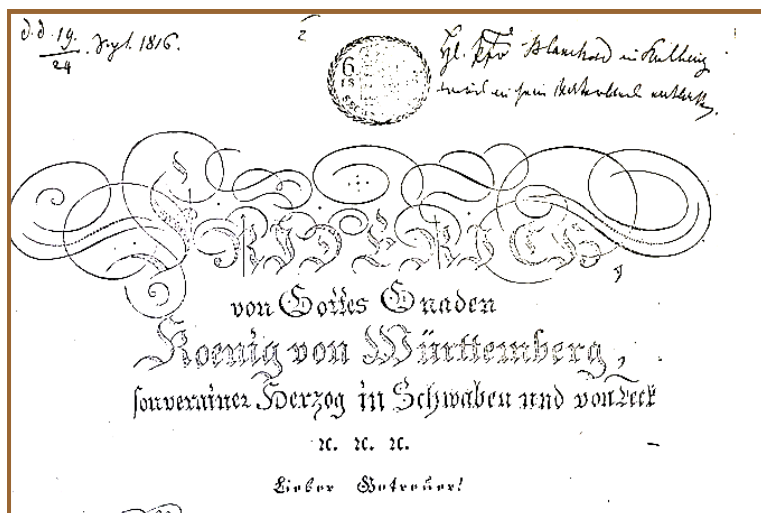 d. d. 19. Sept. 1816.
24
6
FRIDERICH,
von Gottes Gnaden
Koenig von Württemberg,
souverainer Herzog in Schwaben und von Teck
ꝛc. ꝛc. ꝛc.
Lieber Getreuer!